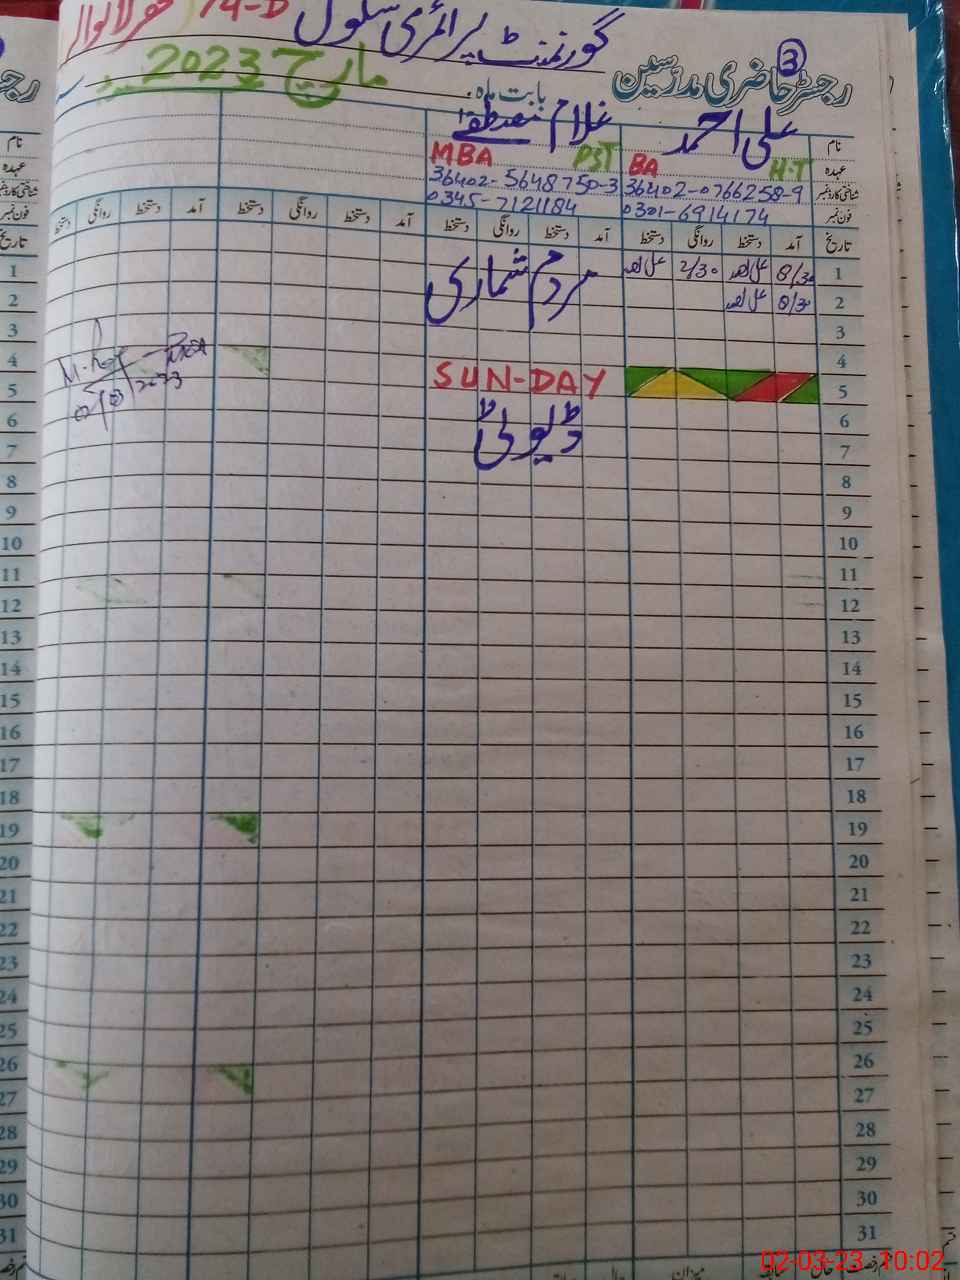 گورنمنٹ پرائمری سکول 74-D
رجسٹر حاضری مدرسین 3
بابت ماہ مارچ 2023
نام علی احمد غلام مصطفےٰ
عہدہ BA H.T MBA PST
شناختی کارڈ نمبر 36402-0766258-9 36402-5648750-3
فون نمبر 0301-6914174 0345-7121184
تاریخ آمد دستخط روانگی دستخط آمد دستخط روانگی دستخط آمد دستخط روانگی دستخط آمد دستخط روانگی دستخط
1 8/30 علی احمد 2/30 علی احمد مردم شماری
2 8/30 علی احمد
3
4
5 SUN-DAY
6 ڈیوٹی
7
8
9
10
11
12
13
14
15
16
17
18
19
20
21
22
23
24
25
26
27
28
29
30
31
02-03-23 10:02